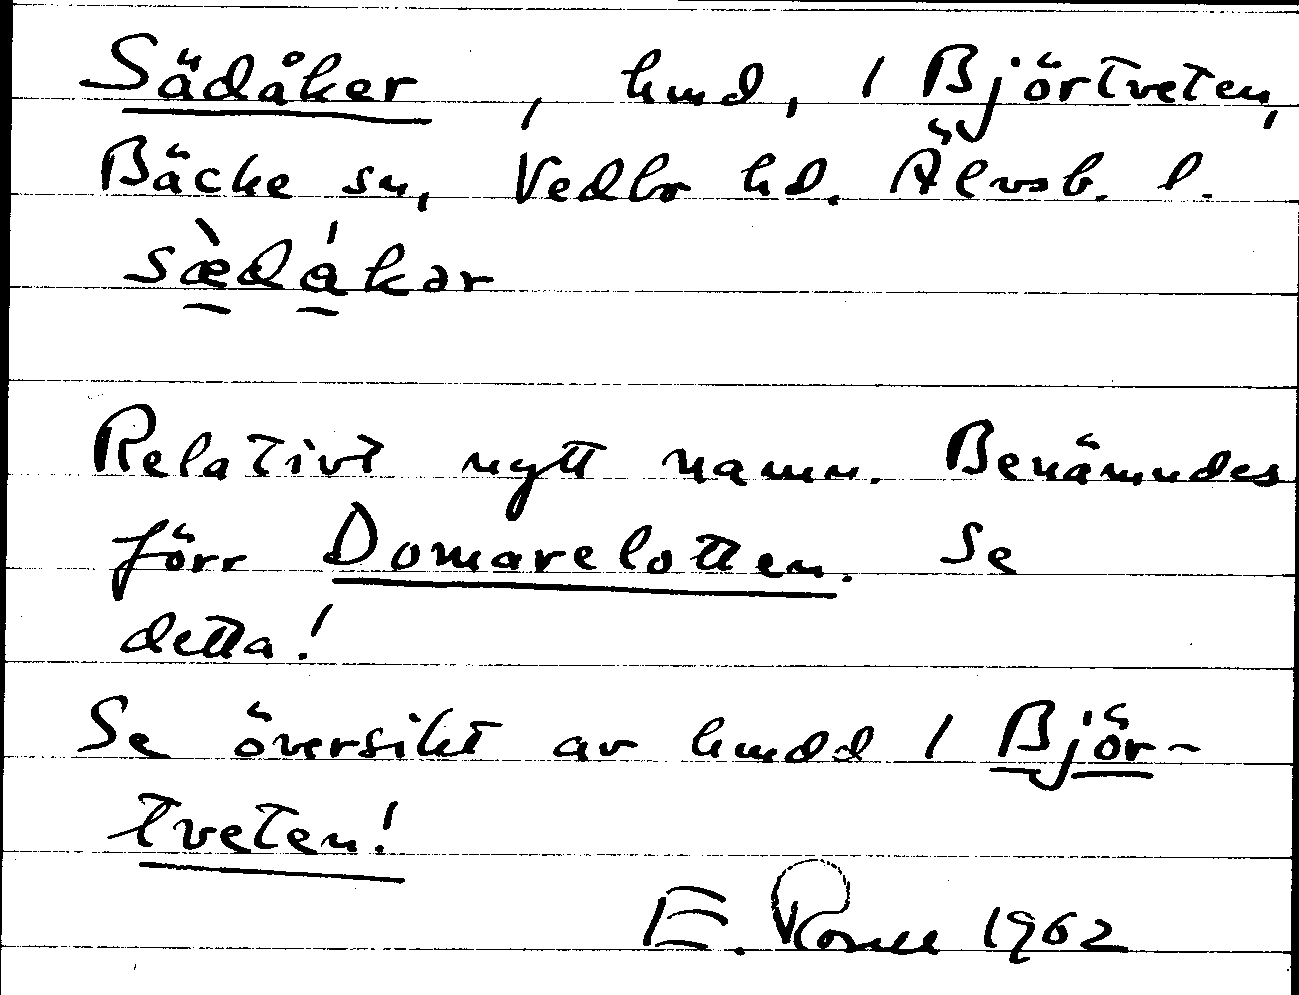 Sädåker, hmd, i Björtveten,
Bäcke sn, Vedbo hd. Älvsb. l.
sæ̀dåkər
Relativt nytt namn. Benämndes
förr Domarelotten. Se
detta!
Se översikt av hmdd i Björ-
tveten!
E. 1962